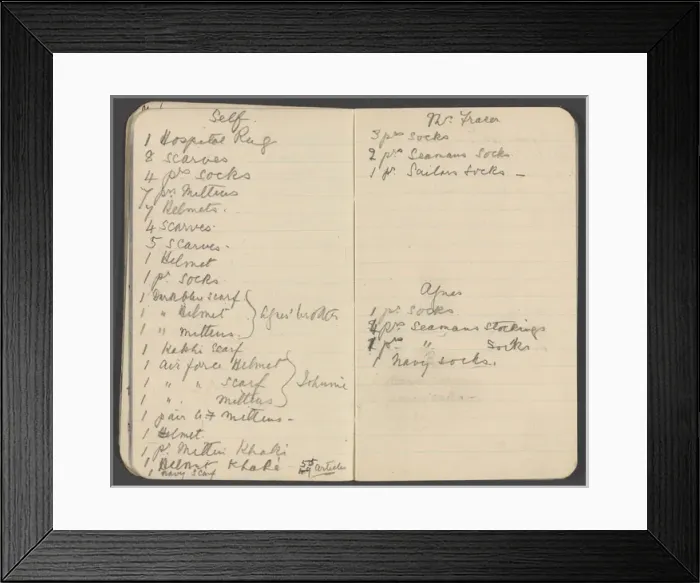 Self.
1 Hospital Rug
8 scarves
4 prs socks
7 prs Mittens
7 Helmets.
4 scarves.
5 scarves.
1 Helmet
1 pr socks
1 scarf
1 " Helmet
1 " mittens.
Agnes' brother
1 Kakhi scarf
1 Air force Helmet
1 " " scarf
1 " mittens
Johnnie
1 pair mittens -
1 Helmet.
1 pr Mittens Khaki
1 Helmet Khaki
1 Navy scarf
articles
Mrs. Fraser
3 prs socks
2 prs Seamans Socks
1 pr Sailors socks -
Agnes
1 pr socks
prs Seamans Stockings
prs " Socks
1 Navy socks.